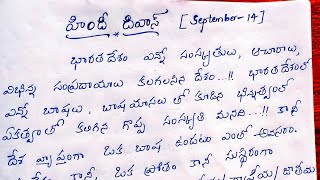 హిందీ దివాస్ [September-14]
భారతదేశం ఎన్నో సంస్కృతులు, ఆచారాలు,
విభిన్న సంప్రదాయాలు కలగలసిన దేశం...!! భారతదేశంలో
ఎన్నో భాషలు, భాష యాసలతో కూడిన భిన్నత్వంలో
ఏకత్వంలో కలిగిన గొప్ప సంస్కృతి మనది...!! కానీ
దేశ వ్యాప్తంగా ఒక భాష ఉండటం ఎంతో అవసరం.
కానీ, ఒక ప్రాంతం కానీ సుస్థిరంగా
జాతీయ